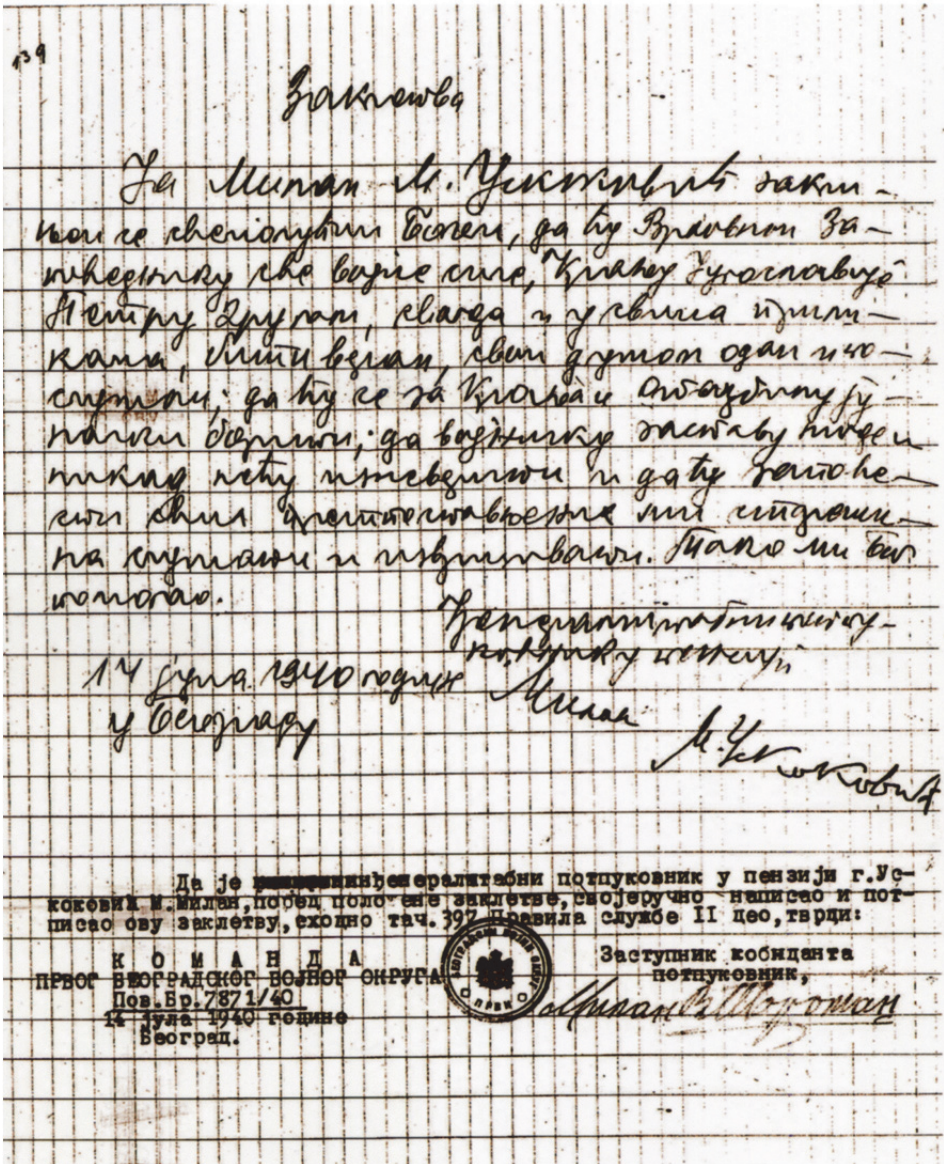 139
Заклетва
Ја Милан М. Ускоковић закли-
њем се свемогућим Богом, да ћу Врховном За-
поведнику све војне силе, Краљу Југославије
Петру Другом, свагда и у свима прили-
кама, бити веран, свом душом одан и по-
слушан; да ћу се за Краља и отаџбину ју-
начки борити; да војничку заставу нигде и
никад нећу изневерити и да ћу запове-
сти свих претпостављених ми стареши-
на слушати и извршивати. Тако ми Бог
помогао.
Ђенералштабни потпу-
ковник у пензији
14 јула 1940 године
Милан
у Београду
М. Ускоковић
Да је ђенералштабни потпуковник у пензији г.Ус-
коковић М.Милан,поред положене заклетве,својеручно написао и пот-
писао ову заклетву,сходно тач.397 Правила службе II део,тврди:
К О М А Н Д А
ПРВОГ БЕОГРАДСКОГ ВОЈНОГ ОКРУГА
Пов.Бр.7871/40
14 јула 1940 године
Београд.
ПРВИ
Заступник команданта
потпуковник,
Милан